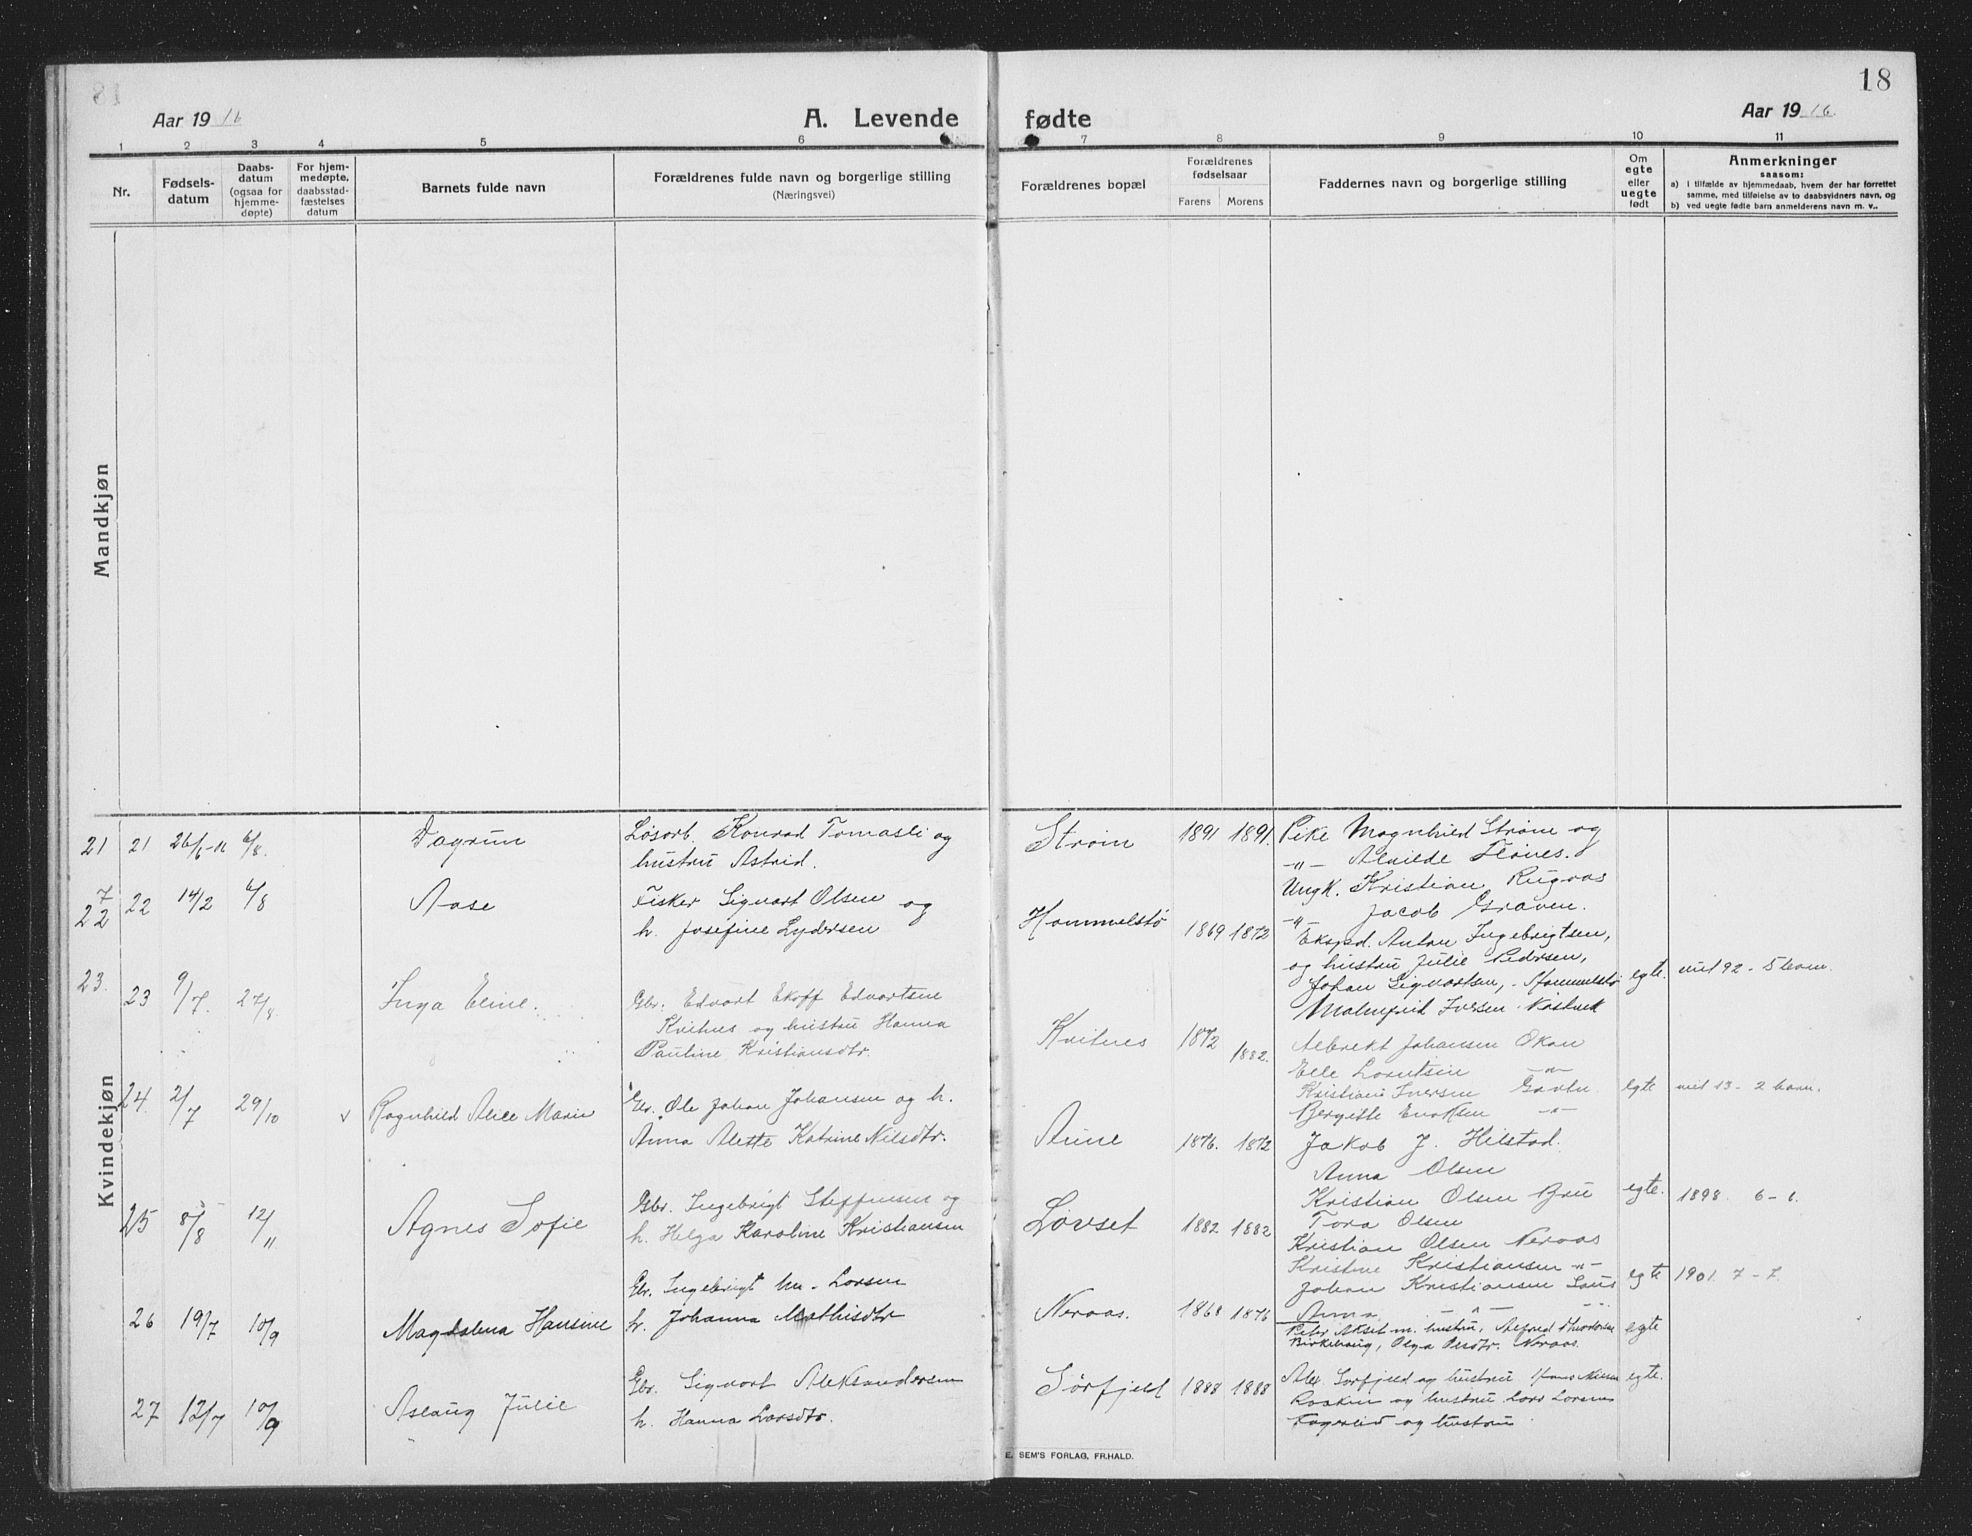 18
Aar 1916 A. Levende
fødte Aar 1916
1 2 3 4 5 6
7 8 9 10 11
Nr.
Fødsels-
datum
Daabs-
datum
(ogsaa for
hjemme-
døpte)
For hjem-
medøpte,
daabsstad-
fæstelses
datum
Barnets fulde navn
Forældrenes fulde navn og borgerlige stilling
(Næringsvei)
Forældrenes bopæl
Forældrenes
fødselsaar
Farens Morens
Faddernes navn og borgerlige stilling
Om
egte
eller
uegte
født
Anmerkninger
saasom:
a) i tilfælde av hjemmedaab, hvem der har forrettet
samme, med tilføielse av to daabsvidners navn, og
b) ved uegte fødte barn anmelderens navn m. v..
Mandkjøn
Kvindekjøn
21 21 26/6 6/8. Dagrun
Løsarb. Konrad Tomasli og
hustru Astrid.
Strøm 1891 1891.
Pike Magnhild Strøm og
-"- Alvilde Flønes.
Ungk. Kristian Rugaas
-"- Jacob Graven.
22 22 14/2 6/8 Aase
Fisker Sigvart Olsen og
h. Josefine Lydersen
Hammelstø 1869 1872
Eksped. Anton Ingebrigtsen,
og hustru Julie Pedersen,
Johan Sigvartsen, Hammelstø
egte. viet 92 - 5 barn.
23. 23 9/7. 27/8 Inga Eline.
Gbr. Edvart Ekoff Edvartsen
Kvitnes og hustru Hanna
Pauline Kristiansdtr.
Kvitnes 1872 1882.
Albrekt Johansen
Elle Lorntsen -"-
Kristian Iversen
Bergitte Enoksen -"-
egte viet 13 - 2 barn.
24. 2/7 29/10 v Ragnhild Alice Marie
Gbr. Ole Johan Johansen og h.
Anna Alette Katrine Nilsdtr.
Aune 1876. 1872
Jakob J. Hilstad.
Anna Olsen
Kristian Olsen Bru
Tora Olsen
egte. 1898. 6-1.
25 8/8 12/11 Agnes Sofie
Gbr. Ingebrigt Steffensen og
h. Helga Karoline Kristiansen
Løvset 1882 1882
Kristian Olsen Neraas
Kristine Kristiansen -"-
Johan Kristiansen
Anna -"-
egte 1901. 7-7.
26 19/7 10/9 Magdalena Hansine
Gbr. Ingebrigt Larsen
h. Johanna Mathisdtr
Neraas. 1868 1876
Peter Akset m. hustru, Alfred
Birkehaug, Olga Olsdtr. Neraas.
egte
27 12/7 10/9 Aslaug Julie
Gbr. Sigvart Aleksandersen
h. Hanna Larsdtr.
Sørfjeld 1888 1888
Alex. Sørfjeld og hustru Hans Nilsen
og hustru Lars Larsen
Fagerlid og hustru
egte.
E. SEM'S FORLAG, FR.HALD.